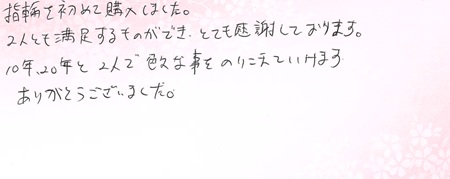 指輪を初めて購入しました。
2人とも満足するものができ、とても感謝しております。
10年、20年と2人で色々な事をのりこえていけます
ありがとうございました。